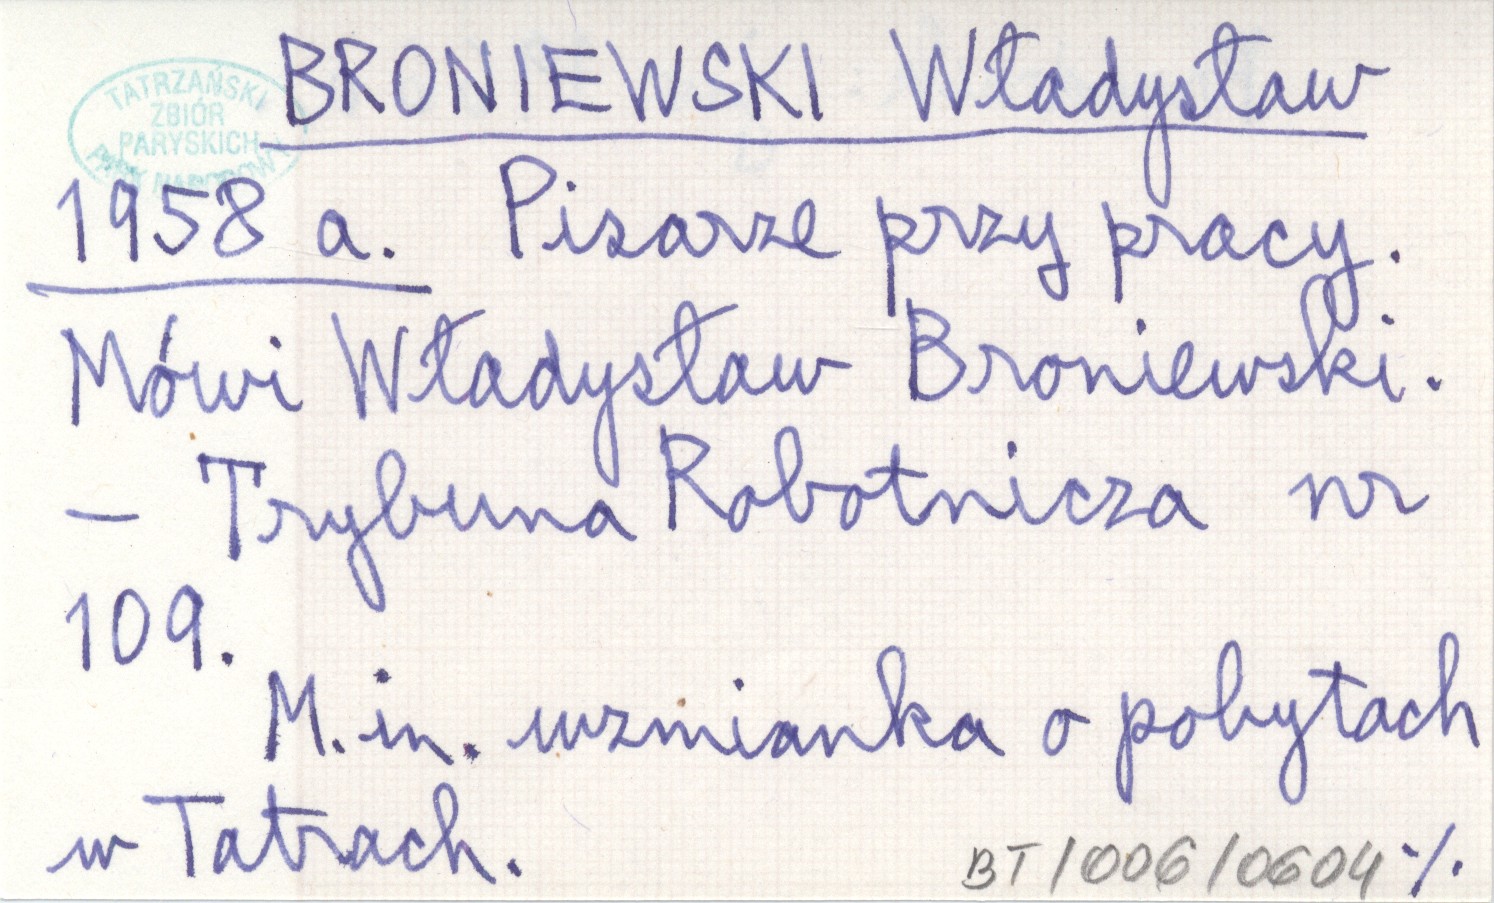 BRONIEWSKI Władysław
TATRZAŃSKI
ZBIÓR
PARYSKICH
PARK NARODOWY
1958 a. Pisarze przy pracy.
Mówi Władysław Broniewski.
– Trybuna Robotnicza nr
109.
M.in. wzmianka o pobytach
w Tatrach.
BT/006/0604 ./.